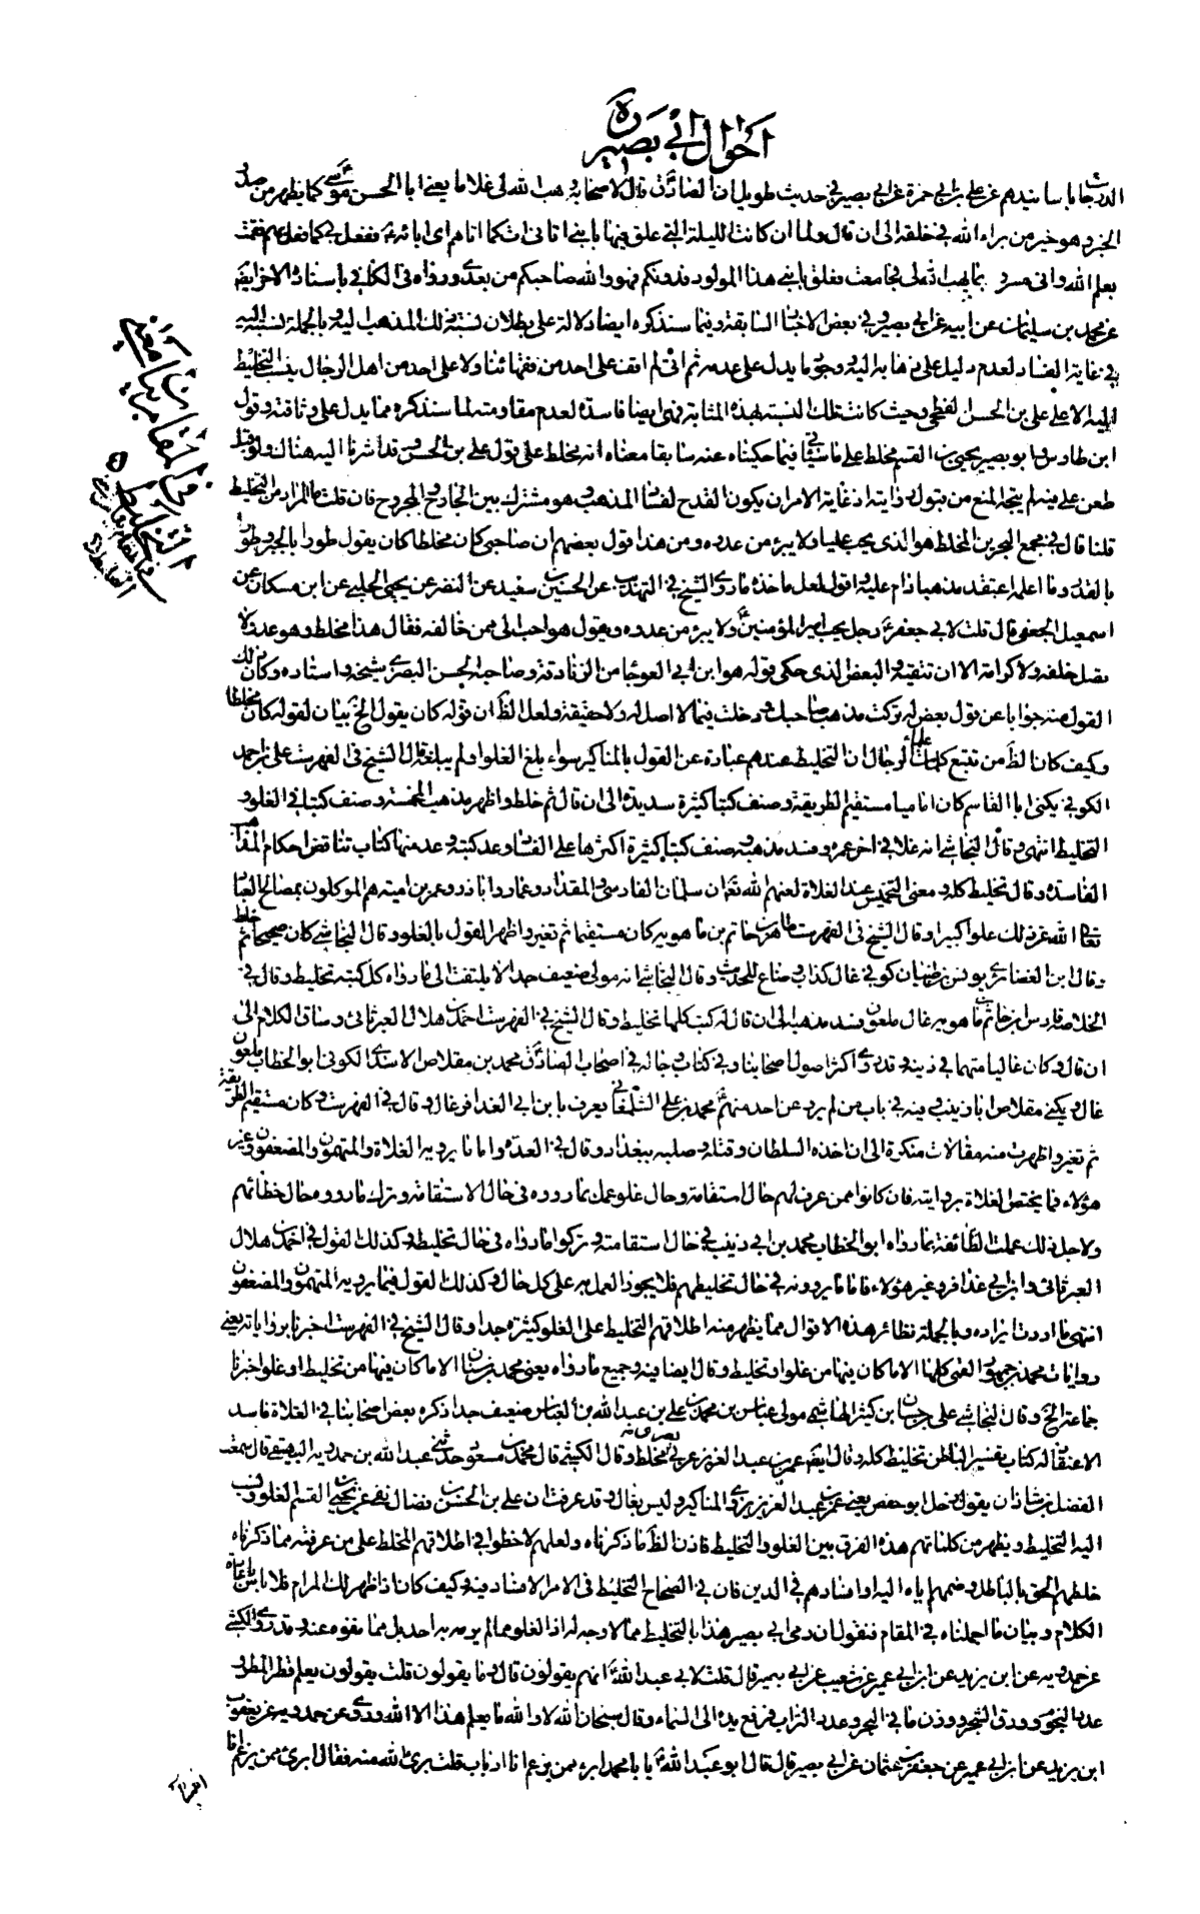 احوال ابي بصير
الدرجات باسانيدهم عن علي بن ابي حمزة عن ابي بصير في حديث طويل ان الصادق قال لاصحابه وهب الله لي غلاما يعني ابا الحسن موسى كما يظهر من صدر
الخبر وهو خير من براء الله في خلقه الى ان قال ولما ان كانت الليلة التي علق فيها بابني اتاني ات كما اتاهم اي ابائه ففعل بي كما فعل بهم فقمت
بعلم الله واني مسرور بما يهب الله لي فجامعت فعلق بابني هذا المولود فدونكم فهو والله صاحبكم من بعدي ورواه في الكافي باسناد الاخر ايضا
عن محمد بن سليمان عن ابيه عن ابي بصير وفي بعض الاخبار السابقة وفيما سنذكره ايضا دلالة على بطلان نسبة ذلك المذهب اليه وبالجملة نسبته اليه
في غاية الفساد لعدم دليل على ذهابه اليه ووجود ما يدل على عدمه ثم اني لم اقف على احد من فقهائنا ولا على احد من اهل الرجال ينسب التخليط
اليه الا علي بن الحسن الفطحي وحيث كانت تلك النسبة بهذه المثابة فهي ايضا فاسدة لعدم مقاومته لما سنذكره مما يدل على وثاقته وقول
ابن طاوس وابو بصير يحيى بن القسم مخلط على ما فيما حكيناه عنه سابقا معناه انه مخلط على قول علي بن الحسن وقد اشرنا اليه هناك ولو
طعن عليه لم يتجه المنع من قبول روايته اذ غاية الامر ان يكون القدح لفساد المذهب وهو مشترك بين الجارح والمجروح فان قلت ما المراد من التخليط
قلنا قال في مجمع البحرين المخلط هو الذي يحب عليا ولا يبرء من عدوه ومن هذا قول بعضهم ان صاحبي كان مخلطا كان يقول طورا بالجبر وطورا
بالقدر وما اعلمه اعتقد مذهبا دام عليه اقول لعل ماخذه ما رواه الشيخ في التهذيب عن الحسين بن سعيد عن النضر عن يحيى الحلبي عن ابن مسكان عن
اسمعيل الجعفي قال قلت لابي جعفر رجل يحب امير المؤمنين ولا يبرء من عدوه ويقول هو احب الي ممن خالفه فقال هذا مخلط وهو عدو لا
تصل خلفه ولا كرامة الا ان تتقيه والبعض الذي حكى قوله هو ابن ابي العوجا من الزنادقة وصاحبه الحسن البصري شيخه واستاده وكان ذلك
القول منه جوابا عن قول بعض له تركت مذهب صاحبك ودخلت فيما لا اصل له ولا حقيقة ولعل الظ ان قوله كان يقول الخ بيان لقوله كان مخلطا
وكيف كان الظ من تتبع كلمات علماء الرجال ان التخليط عندهم عبارة عن القول بالمناكير سواء بلغ الغلو او لم يبلغه قال الشيخ في الفهرست علي بن احمد
الكوفي يكنى ابا القاسم كان اماميا مستقيم الطريقة وصنف كتبا كثيرة سديدة الى ان قال ثم خلط واظهر مذهب المخمسة وصنف كتبا في الغلو و
التخليط انتهى وقال النجاشي انه غلا في اخر عمره وفسد مذهبه وصنف كتبا كثيرة اكثرها على الفساد وعد كتبه وعد منها كتاب تناقض احكام المذاهب
الفاسدة وقال تخليط كله ومعنى التخميس عند الغلاة لعنهم الله تع ان سلمان الفارسي والمقداد وعمار وابا ذر وعمر بن امية هم الموكلون بمصالح العالم
تعالى الله عن ذلك علوا كبيرا وقال الشيخ في الفهرست طاهر بن حاتم بن ماهويه كان مستقيما ثم تغير واظهر القول بالغلو وقال النجاشي كان صحيحا ثم خلط
وقال ابن الغضائري يونس بن ظبيان كوفي غال كذاب وضاع للحديث وقال النجاشي انه مولى ضعيف جدا لا يلتفت الى ما رواه كل كتبه تخليط وقال في
الخلاصة فارس بن حاتم بن ماهويه غال ملعون فسد مذهبه الى ان قال له كتب كلها تخليط وقال الشيخ في الفهرست احمد بن هلال العبرتائي وساق الكلام الى
ان قال وكان غاليا متهما في دينه وقد روى اكثر اصول اصحابنا وفي كتاب رجاله في اصحاب الصادق محمد بن مقلاص الاسدي الكوفي ابو الخطاب ملعون
غال ويكنى مقلاص ابا زينب وفيه في باب من لم يرو عن احد منهم محمد بن علي الشلمغاني يعرف بابن ابي العذافر غال وقال في الفهرست وكان مستقيم الطريقة
ثم تغير واظهرت منه مقالات منكرة الى ان اخذه السلطان وقتله وصلبه ببغداد وقال في العدة واما ما يرويه الغلاة والمتهمون والمضعفون وغير
هؤلاء فما يختص الغلاة بروايته فان كانوا ممن عرف لهم حال استقامة وحال غلو عمل بما رووه في حال الاستقامة وترك ما رووه حال خطائهم
ولاجل ذلك عملت الطائفة بما رواه ابو الخطاب محمد بن ابي زينب في حال استقامته وتركوا ما رواه في حال تخليطه وكذلك القول في احمد بن هلال
العبرتائي وابن ابي عذافر وغير هؤلاء فاما ما يروونه في حال تخليطهم فلا يجوز العمل به على كل حال وكذلك القول فيما يرويه المتهمون والمضعفون
انتهى ما اردت ايراده وبالجملة نظائر هذه الاقوال مما يظهر منه اطلاقهم التخليط على الغلو كثيرة جدا وقال الشيخ في الفهرست اخبرنا برواياته يعني
روايات محمد بن جمهور العمي كلها الا ما كان فيها من غلو او تخليط وقال ايضا فيه وجميع ما رواه يعني محمد بن سنان الا ما كان فيها من تخليط او غلو اخبرنا
جماعة الخ وقال النجاشي علي بن حسان بن كثير الهاشمي مولى عباس بن محمد بن علي بن عبد الله بن العباس ضعيف جدا ذكره بعض اصحابنا في الغلاة فاسد
الاعتقاد له كتاب تفسير الباطن تخليط كله وقال ايض عمر بن عبد العزيز عربي بصري مخلط وقال الكشي قال محمد بن مسعود حدثني عبد الله بن حمدويه البيهقي قال سمعت
الفضل بن شاذان يقول زحل ابو حفص يعني عمر بن عبد العزيز يروي المناكير وليس بغال وقد عرفت ان علي بن الحسن بن فضال نفى عن يحيى بن القسم الغلو ونسب
اليه التخليط ويظهر من كلماتهم هذه الفرق بين الغلو والتخليط فاذن الظ ما ذكرناه ولعلهم لاحظوا في اطلاقهم المخلط على من عرفته مما ذكرناه
خلطهم الحق بالباطل وضمهم اياه اليه او افسادهم في الدين فان في الصحاح التخليط في الامر الافساد فيه وكيف كان اذا ظهر لك المرام فلا باس بارجاع
الكلام وبيان ما اجملناه في المقام فنقول ان رمي ابي بصير هذا بالتخليط مما لا وجه له اذ الغلو مما لم يرمه به احد بل مما نفوه عنه وقد روى الكشي
عن حمدويه عن ابن يزيد عن ابن ابي عمير عن شعيب عن ابي بصير قال قلت لابي عبد الله انهم يقولون قال وما يقولون قلت يقولون يعلم قطر المطر و
عدد النجوم وورق الشجر ووزن ما في البحر وعدد التراب فرفع يده الى السماء وقال سبحان الله لا والله ما يعلم هذا الا الله وروى عن حمدويه عن يعقوب
ابن يزيد عن ابن ابي عمير عن جعفر بن عثمان عن ابي بصير قال قال ابو عبد الله يا با محمد ابرء ممن يزعم انا ارباب قلت برئ الله منه فقال ابرئ ممن يزعم انا